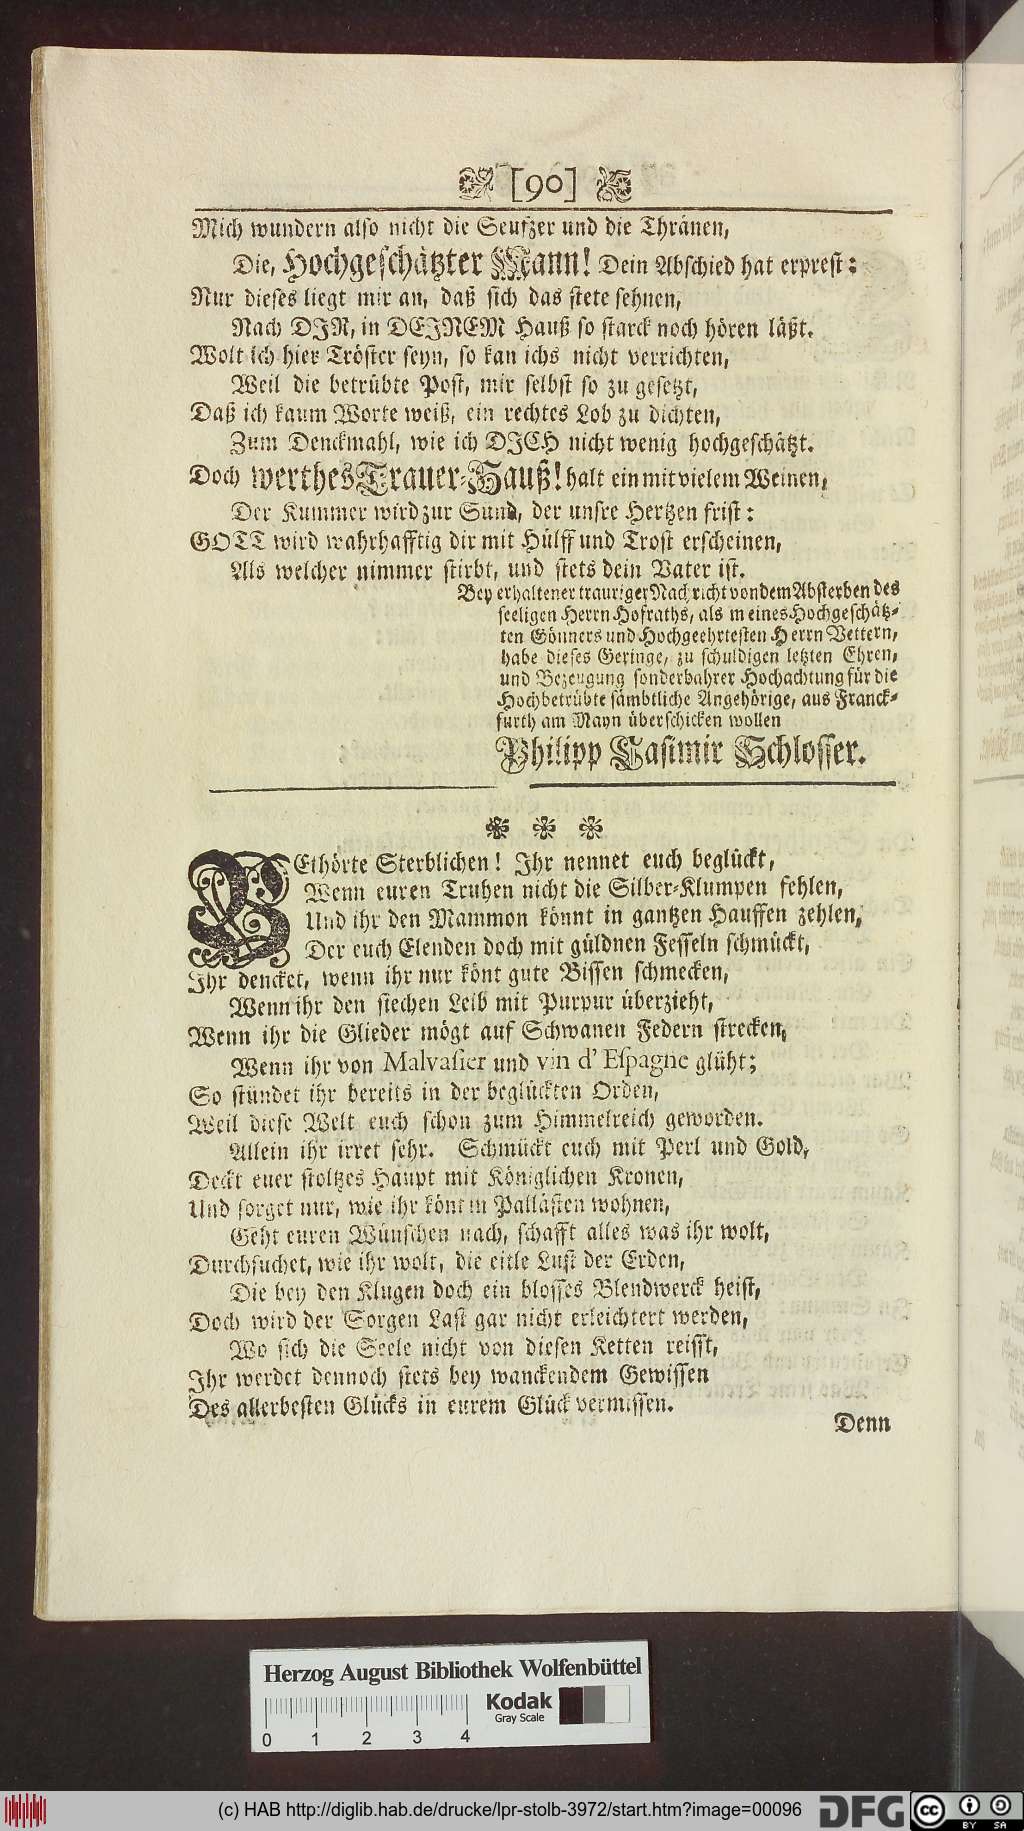 [90]
Mich wundern also nicht die Seufzer und die Thränen,
Die, Hochgeschätzter Mann! Dein Abschied hat erprest:
Nur dieses liegt mir an, daß sich das stete sehnen,
Nach DIR, in DEINEM Hauß so starck noch hören läßt.
Wolt ich hier Tröster seyn, so kan ichs nicht verrichten,
Weil die betrübte Post, mir selbst so zu gesetzt,
Daß ich kaum Worte weiß, ein rechtes Lob zu dichten,
Zum Denckmahl, wie ich DICH nicht wenig hochgeschätzt.
Doch werthes Trauer-Hauß! halt ein mit vielem Weinen,
Der Kummer wird zur Sünd, der unsre Hertzen frist:
GOTT wird wahrhafftig dir mit Hülff und Trost erscheinen,
Als welcher nimmer stirbt, und stets dein Vater ist.
Bey erhaltener trauriger Nachricht von dem Absterben des
seeligen Herrn Hofraths, als meines Hochgeschätz-
ten Gönners und Hochgeehrtesten Herrn Vettern,
habe dieses Geringe, zu schuldigen letzten Ehren,
und Bezeugung sonderbahrer Hochachtung für die
Hochbetrübte sämbtliche Angehörige, aus Franck-
furth am Mayn überschicken wollen
Philipp Casimir Schlosser.
* * *
BEthörte Sterblichen! Ihr nennet euch beglückt,
Wenn euren Truhen nicht die Silber-Klumpen fehlen,
Und ihr den Mammon könnt in gantzen Hauffen zehlen,
Der euch Elenden doch mit güldnen Fesseln schmückt,
Ihr dencket, wenn ihr nur könt gute Bissen schmecken,
Wenn ihr den siechen Leib mit Purpur überzieht,
Wenn ihr die Glieder mögt auf Schwanen Federn strecken,
Wenn ihr von Malvasier und vin d' Espagne glüht;
So stündet ihr bereits in der beglückten Orden,
Weil diese Welt euch schon zum Himmelreich geworden.
Allein ihr irret sehr. Schmückt euch mit Perl und Gold,
Deckt euer stoltzes Haupt mit Königlichen Kronen,
Und sorget nur, wie ihr könt in Pallästen wohnen,
Geht euren Wünschen nach, schafft alles was ihr wolt,
Durchsuchet, wie ihr wolt, die eitle Lust der Erden,
Die bey den Klugen doch ein blosses Blendwerck heist,
Doch wird der Sorgen Last gar nicht erleichtert werden,
Wo sich die Seele nicht von diesen Ketten reisst,
Ihr werdet dennoch stets bey wanckendem Gewissen
Des allerbesten Glücks in eurem Glück vermissen.
Denn
Herzog August Bibliothek Wolfenbüttel
Kodak
Gray Scale
0 1 2 3 4
(c) HAB http://diglib.hab.de/drucke/lpr-stolb-3972/start.htm?image=00096
DFG
cc BY SA